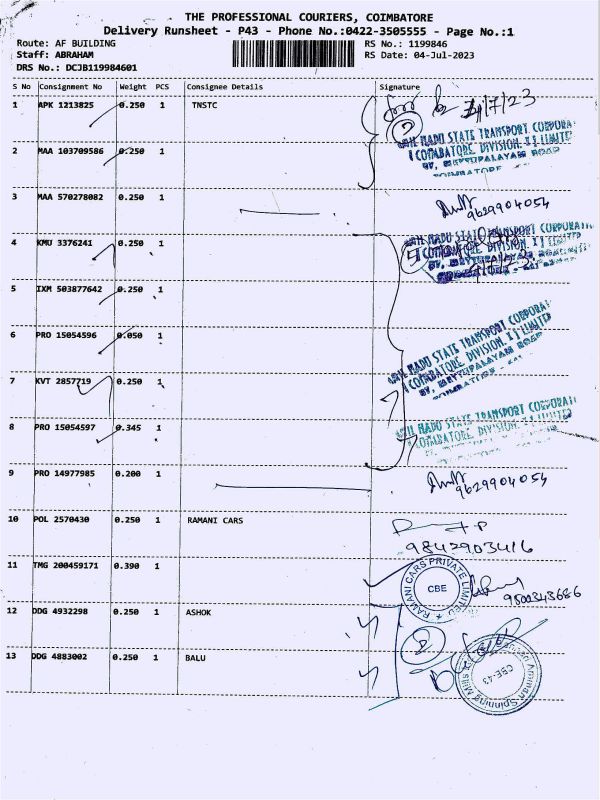 THE PROFESSIONAL COURIERS, COIMBATORE
Delivery Runsheet - P43 - Phone No.:0422-3505555 - Page No.:1
Route: AF BUILDING RS No.: 1199846
Staff: ABRAHAM RS Date: 04-Jul-2023
DRS No.: DCJB119984601
S No Consignment No Weight PCS Consignee Details Signature
1 APK 1213825 0.250 1 TNSTC
4/7/23
TAMIL NADU STATE TRANSPORT CORPORATI
(COIMBATORE DIVISION. II LIMITED
37, METTUPALAYAM ROAD
COIMBATORE
2 MAA 103709586 0.250 1
3 MAA 570278082 0.250 1
9629904054
4 KMU 3376241 0.250 1
5
TAMIL NADU STATE TRANSPORT CORPORATI
(COIMBATORE DIVISION. II LIMITED
37, METTUPALAYAM ROAD
5 IXM 503877642 0.250 1
6 PRO 15054596 0.050 1
TAMIL NADU STATE TRANSPORT CORPORATI
(COIMBATORE DIVISION. II LIMITED
37, METTUPALAYAM ROAD
7 KVT 2857719 0.250 1
8 PRO 15054597 0.345 1
TAMIL NADU STATE TRANSPORT CORPORATI
(COIMBATORE DIVISION. II LIMITED
9 PRO 14977985 0.200 1
9629904054
10 POL 2570430 0.250 1 RAMANI CARS
9842903416
11 TMG 200459171 0.390 1
RAMANI CARS PRIVATE LIMITED
CBE
9500343686
12 DDG 4932298 0.250 1 ASHOK
2
13 DDG 4883002 0.250 1 BALU
Amman Spinning Mills
CBE-43